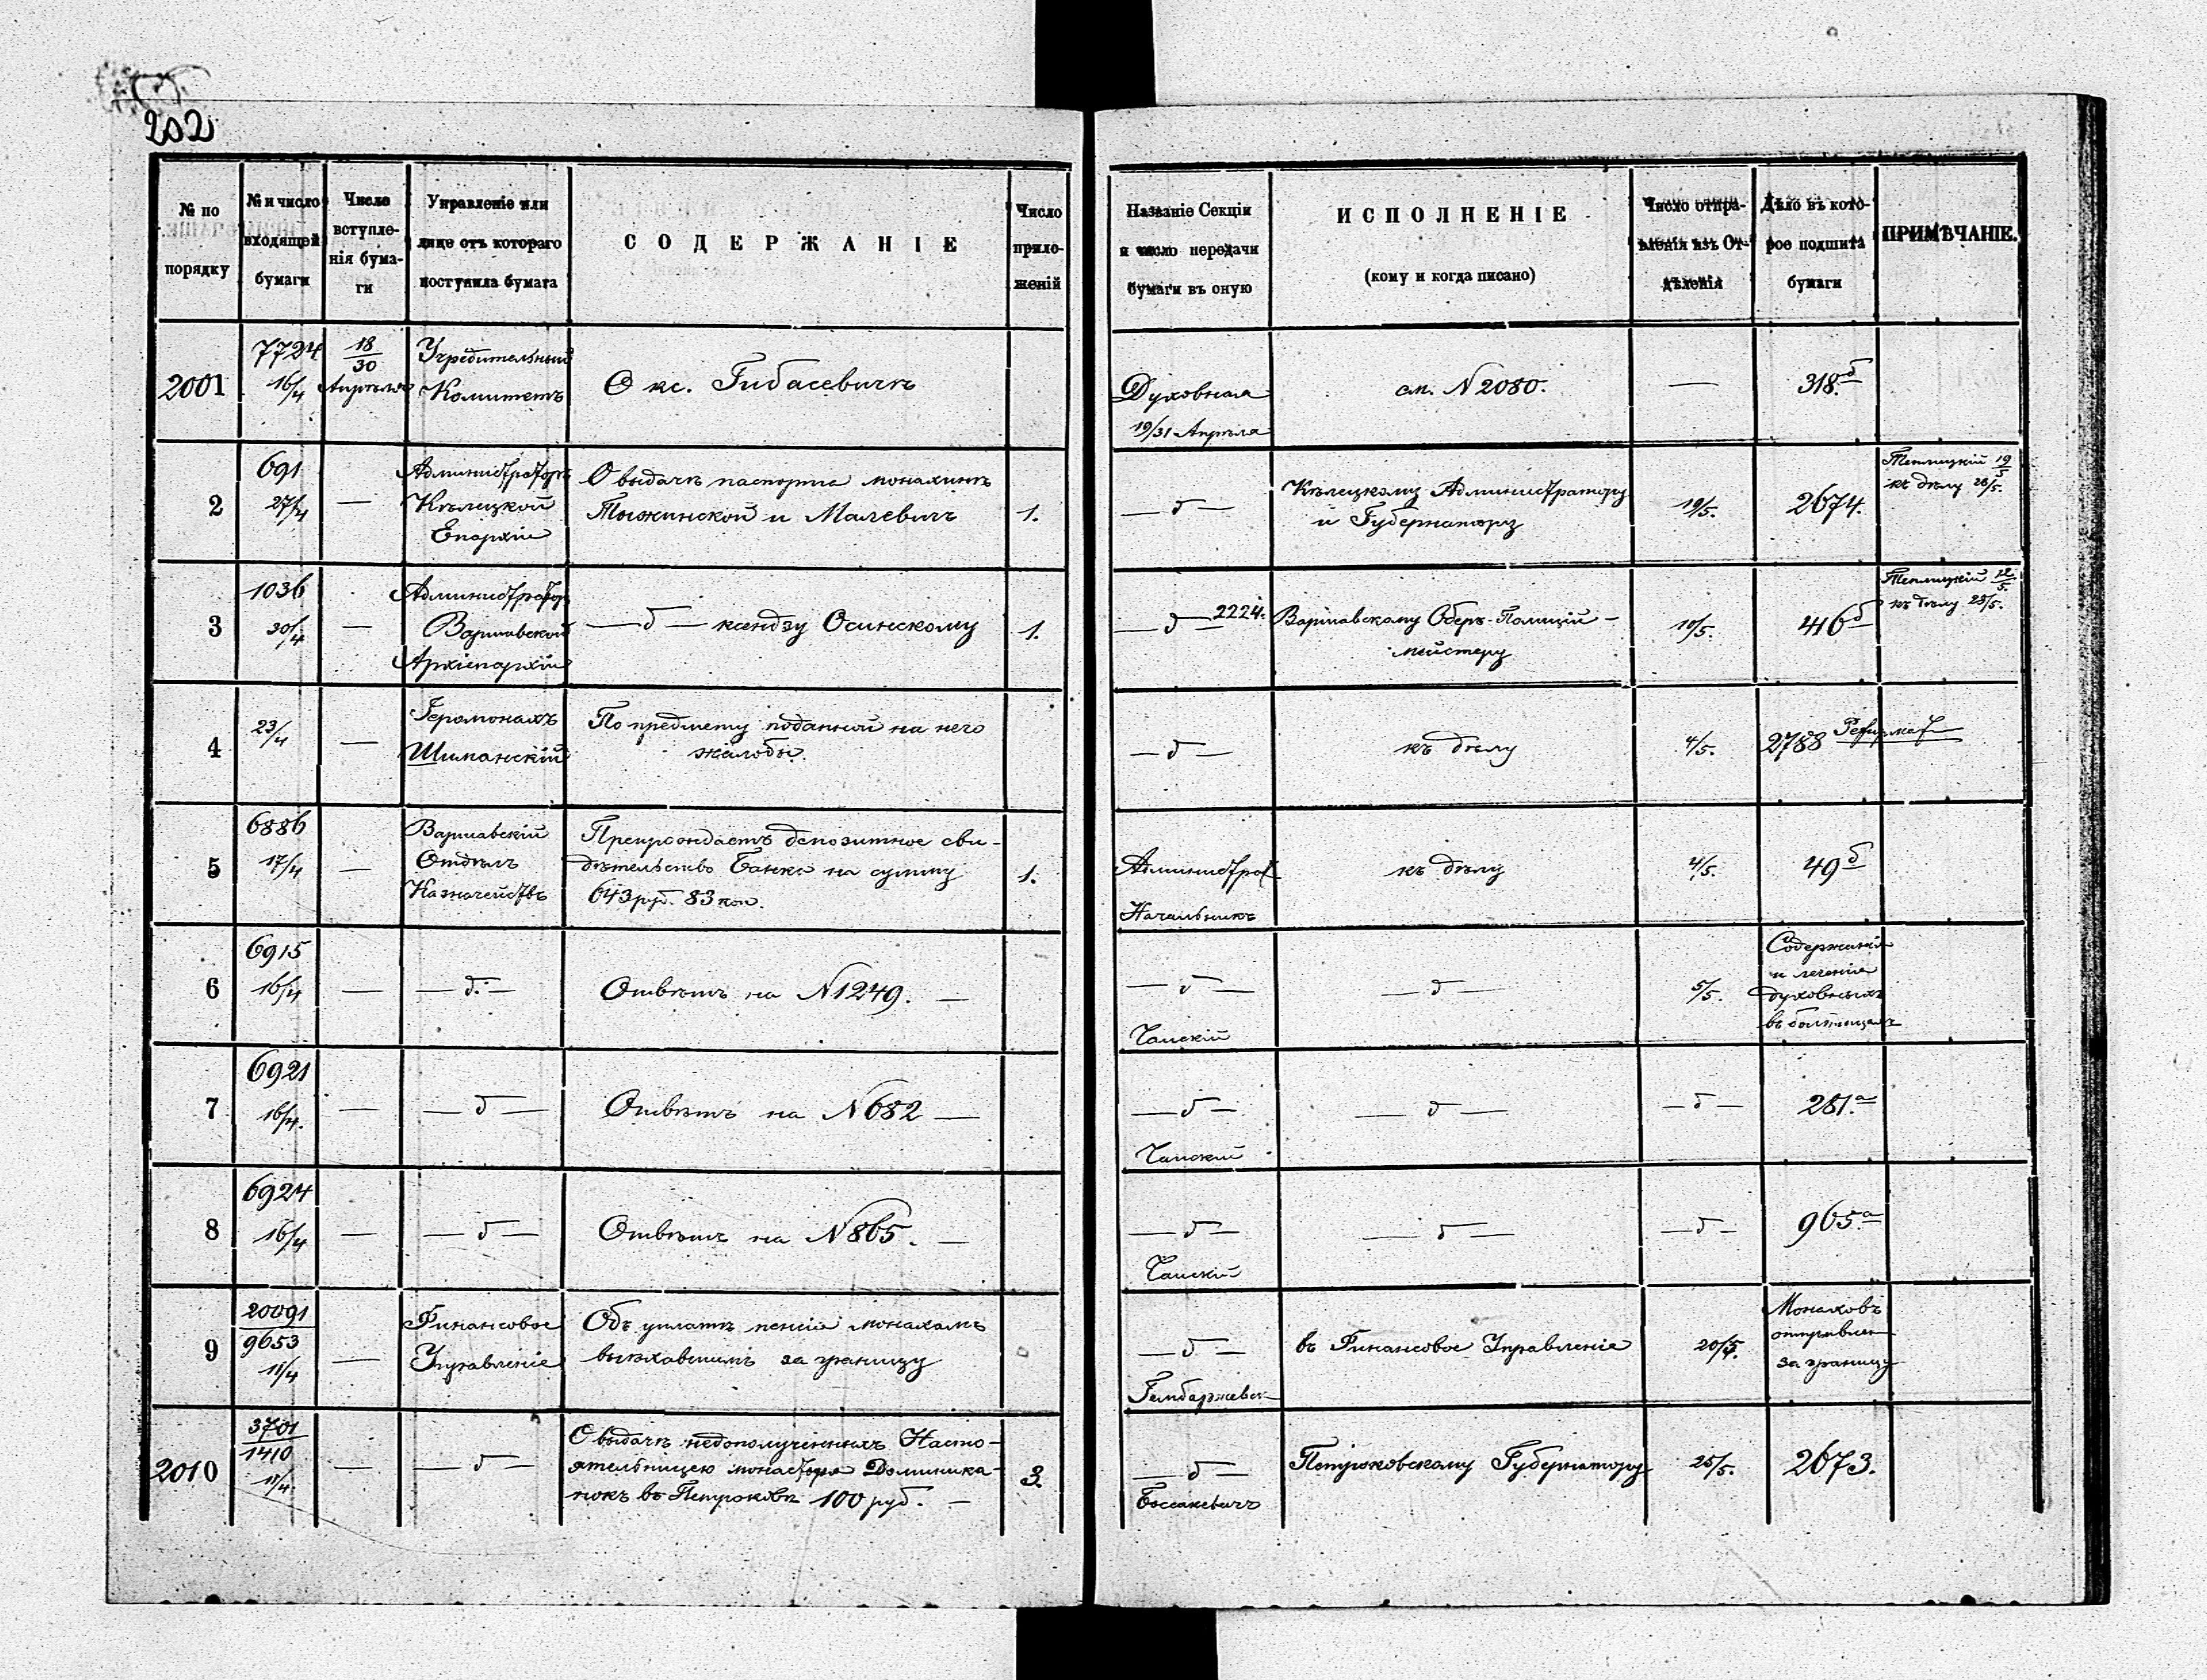 202
№ по порядку
№ и число входящей бумаги
Число вступле-
нія бума-
ги
Управленіе или
лице отъ котораго
поступила бумага
СОДЕРЖАНІЕ
Число
прило-
женій
Названіе Секціи
и число передачи
бумаги въ оную
ИСПОЛНЕНІЕ
(кому и когда писано)
Число отпра-
вленія изъ От-
дѣленія
Дѣло въ кото-
рое подшита
бумаги
ПРИМѢЧАНІЕ.
2001
7724
16/4
18/30
Апрѣля
Учредительный
Комитетъ
О кс. Гибасевичѣ
Духовная
19/31 Апрѣля
см. N 2080.
—
318.б
2
691
27/4
—
Администраторъ
Кѣлецкой
Епархіи
О выдачѣ паспорта монахинѣ
Тыжинской и Малевичъ
1.
— д —
Кѣлецкому Администратору
и Губернатору
19/5.
2674.
Теплицкій 19/5
къ дѣлу 26/5.
3
1036
30/4
—
Администраторъ
Варшавской
Архіепархіи
— д — ксендзу Осинскому
1.
— д — 2224.
Варшавскому Оберъ-Полицій-
мейстеру
10/5.
416б
Теплицкій 22/5.
къ дѣлу 25/5.
4
23/4
—
Іеромонахъ
Шиманскій
По предмету поданной на него
жалобы.
— д —
къ дѣлу
4/5.
2788
5
6886
17/4
—
Варшавскій
Отдѣлъ
Казначействъ
Препровождаетъ депозитное сви-
дѣтельство Банка на сумму
643 руб. 83 коп.
1.
Администрат
Начальникъ
къ дѣлу
4/5.
49б
6
6915
16/4
—
— д. —
Отвѣтъ на N 1249. —
— д —
Чамскій
— д —
5/5.
Содержаніе
и леченіе
духовныхъ
въ больницахъ
7
6921
16/4.
—
— д —
Отвѣтъ на N 682 —
— д —
Чамскій
— д —
— д —
281.а
8
6924
16/4
—
— д —
Отвѣтъ на N 865. —
— д —
Чамскій
— д —
— д —
965.а
9
20091
9653
11/4
—
Финансовое
Управленіе
Объ уплатѣ пенсіи монахамъ
выѣхавшимъ за границу
— д —
въ Финансовое Управленіе
20/5.
Монаховъ
отправлен
за границу
2010
3701
1410
11/4
—
— д —
О выдачѣ недополученныхъ Насто-
ятельницею монастыря Доминика-
нокъ въ Петроковѣ 100 руб. —
3.
— д —
Петроковскому Губернатору
25/5.
2673.